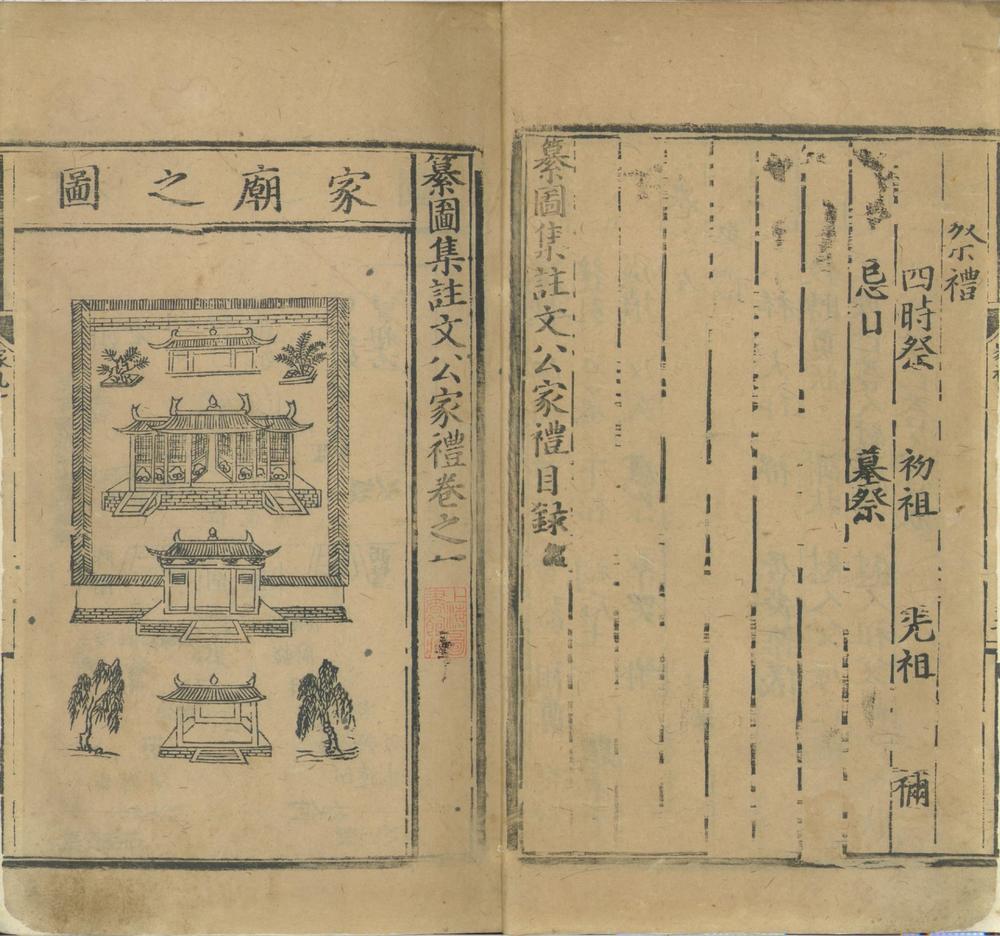 祭禮
四時祭 初祖 先祖 禰
忌日 墓祭
纂圖集註文公家禮目録
纂圖集註文公家禮卷之一
家廟之圖